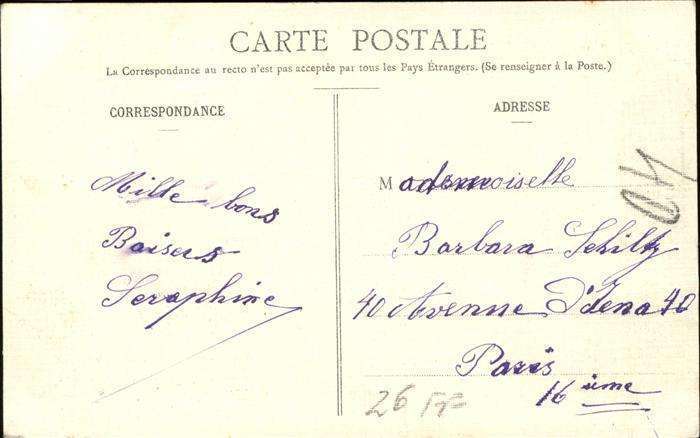 CARTE POSTALE
La Correspondance au recto n'est pas acceptée par tous les Pays Étrangers. (Se renseigner à la Poste.)
CORRESPONDANCE
Mille bons
Baisers
Seraphine
ADRESSE
Mademoiselle
Barbara Schiltz
40 Avenue D'Iena 40
Paris
16 ième
26 FF